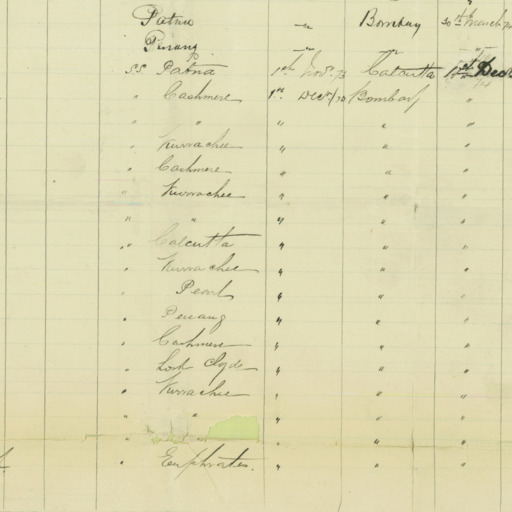 Patna " Bombay 30th March
Penang " "
SS Patna 1st Novr. 73 Calcutta 1st Decr
" Cashmere 1st Decr/70 Bombay "
" " " " "
" Kurrachee " " "
" Cashmere " " "
" Kurrachee " " "
" " " " "
" Calcutta " " "
" Kurrachee " " "
" Pearl " " "
" Penang " " "
" Cashmere " " "
" Lord Clyde " " "
" Kurrachee " " "
" " " " "
" " " "
" Euphrates. " " "